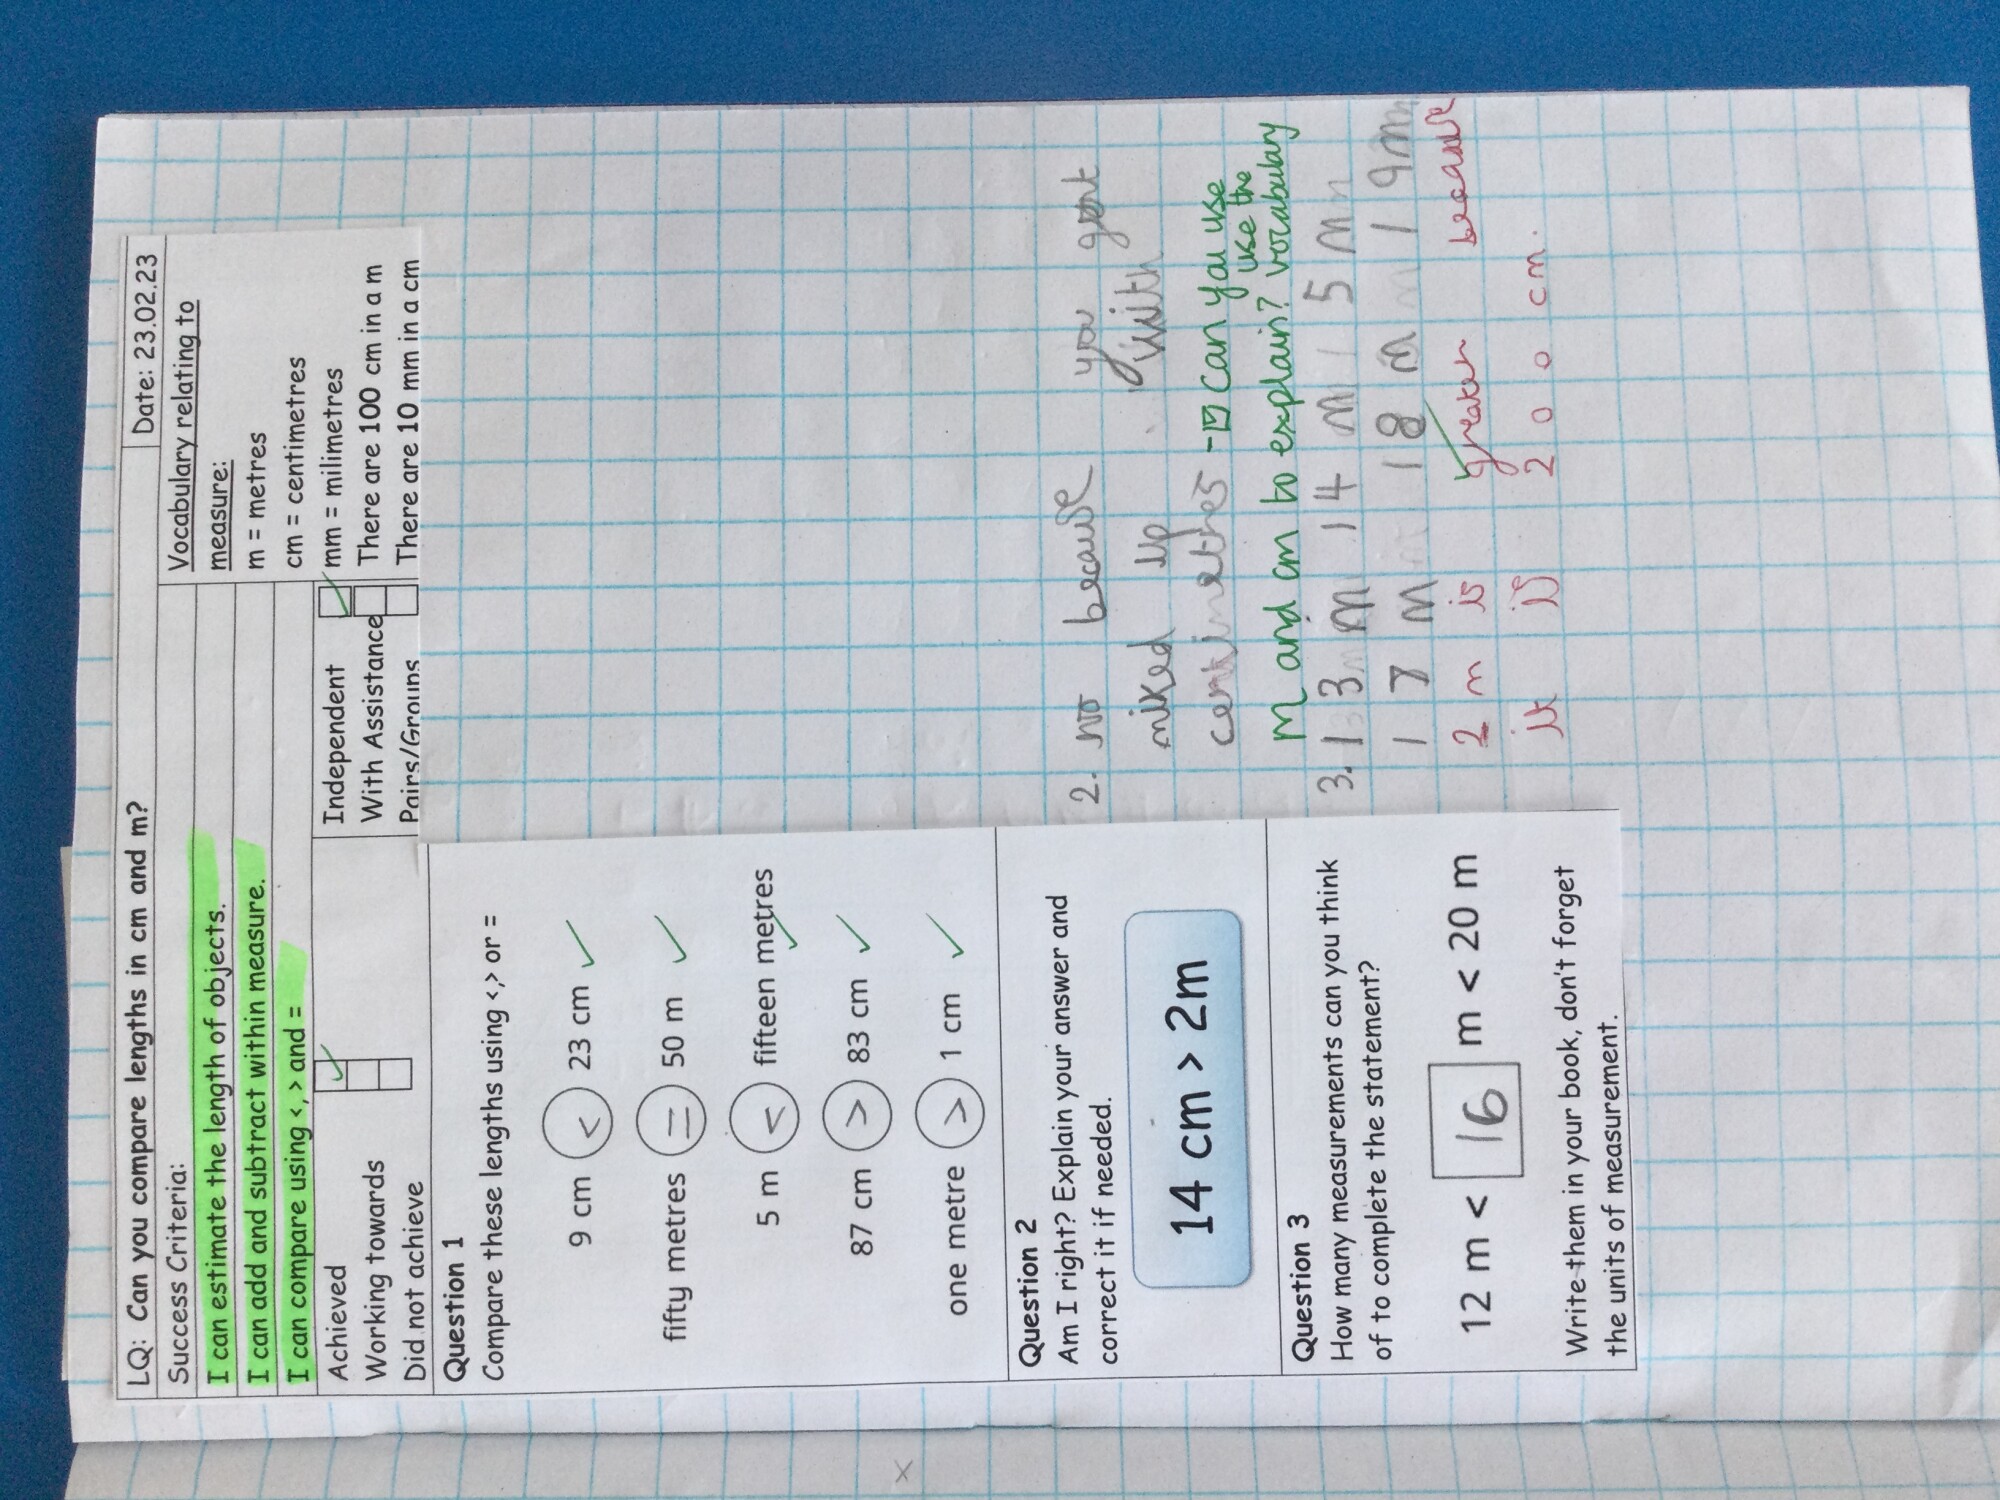 LQ: Can you compare lengths in cm and m?
Date: 23.02.23
Success Criteria:
I can estimate the length of objects.
I can add and subtract within measure.
I can compare using <, > and =
Vocabulary relating to
measure:
m = metres
cm = centimetres
mm = milimetres
There are 100 cm in a m
There are 10 mm in a cm
Achieved
Working towards
Did not achieve
Independent
With Assistance
Pairs/Groups
Question 1
Compare these lengths using <,> or =
9 cm < 23 cm
fifty metres = 50 m
5 m < fifteen metres
87 cm > 83 cm
one metre > 1 cm
Question 2
Am I right? Explain your answer and
correct it if needed.
14 cm > 2m
Question 3
How many measurements can you think
of to complete the statement?
12 m < 16 m < 20 m
Write them in your book, don't forget
the units of measurement.
2. no because you got
mixed up with
centimethes - Can you use
use the
m and cm to explain? vocabulary
3. 13 m 14 m 15 m
17 m 18 m 19 m
2 m is greater because
it is 200 cm.